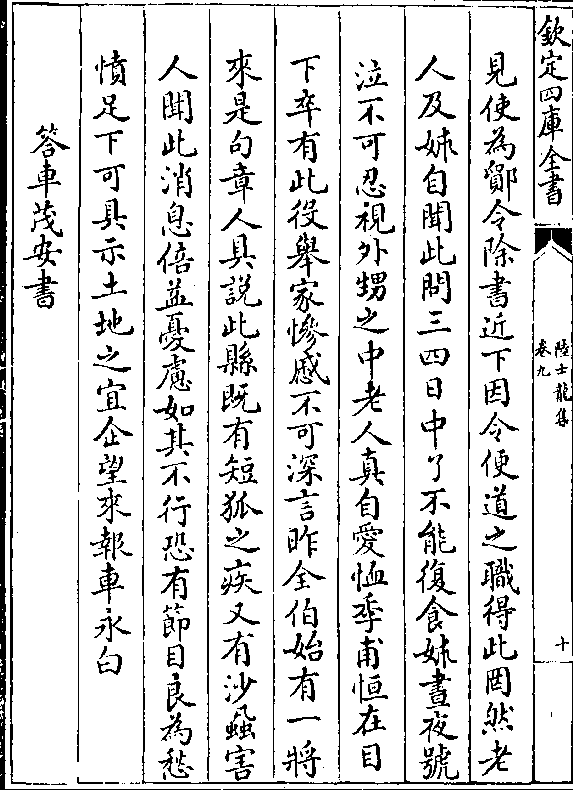 欽定四庫全書
陸士龍集
卷九
十
見使為鄮令除書近下因令便道之職得此罔然老
人及姊自聞此問三四日中了不能復食姊晝夜號
泣不可忍視外甥之中老人真自愛恤季甫恒在目
下卒有此役舉家慘慼不可深言昨全伯始有一將
來是句章人具說此縣既有短狐之疾又有沙蝨害
人聞此消息倍益憂慮如其不行恐有節目良為愁
憤足下可具示土地之宜企望來報車永白
答車茂安書